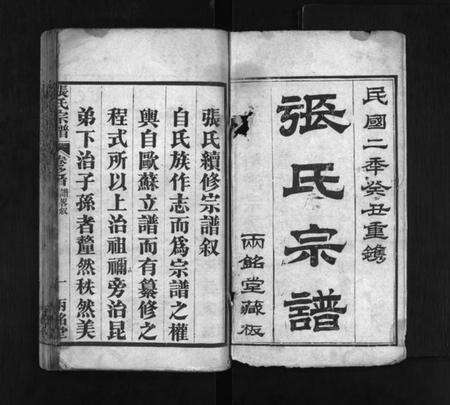 民國二年癸丑重鐫
張氏宗譜
兩銘堂藏板
張氏續修宗譜叙
自氏族作志而為宗譜之權
輿自歐蘇立譜而有纂修之
程式所以上治祖禰旁治昆
弟下治子孫者釐然秩然美
張氏宗譜
一 兩銘堂